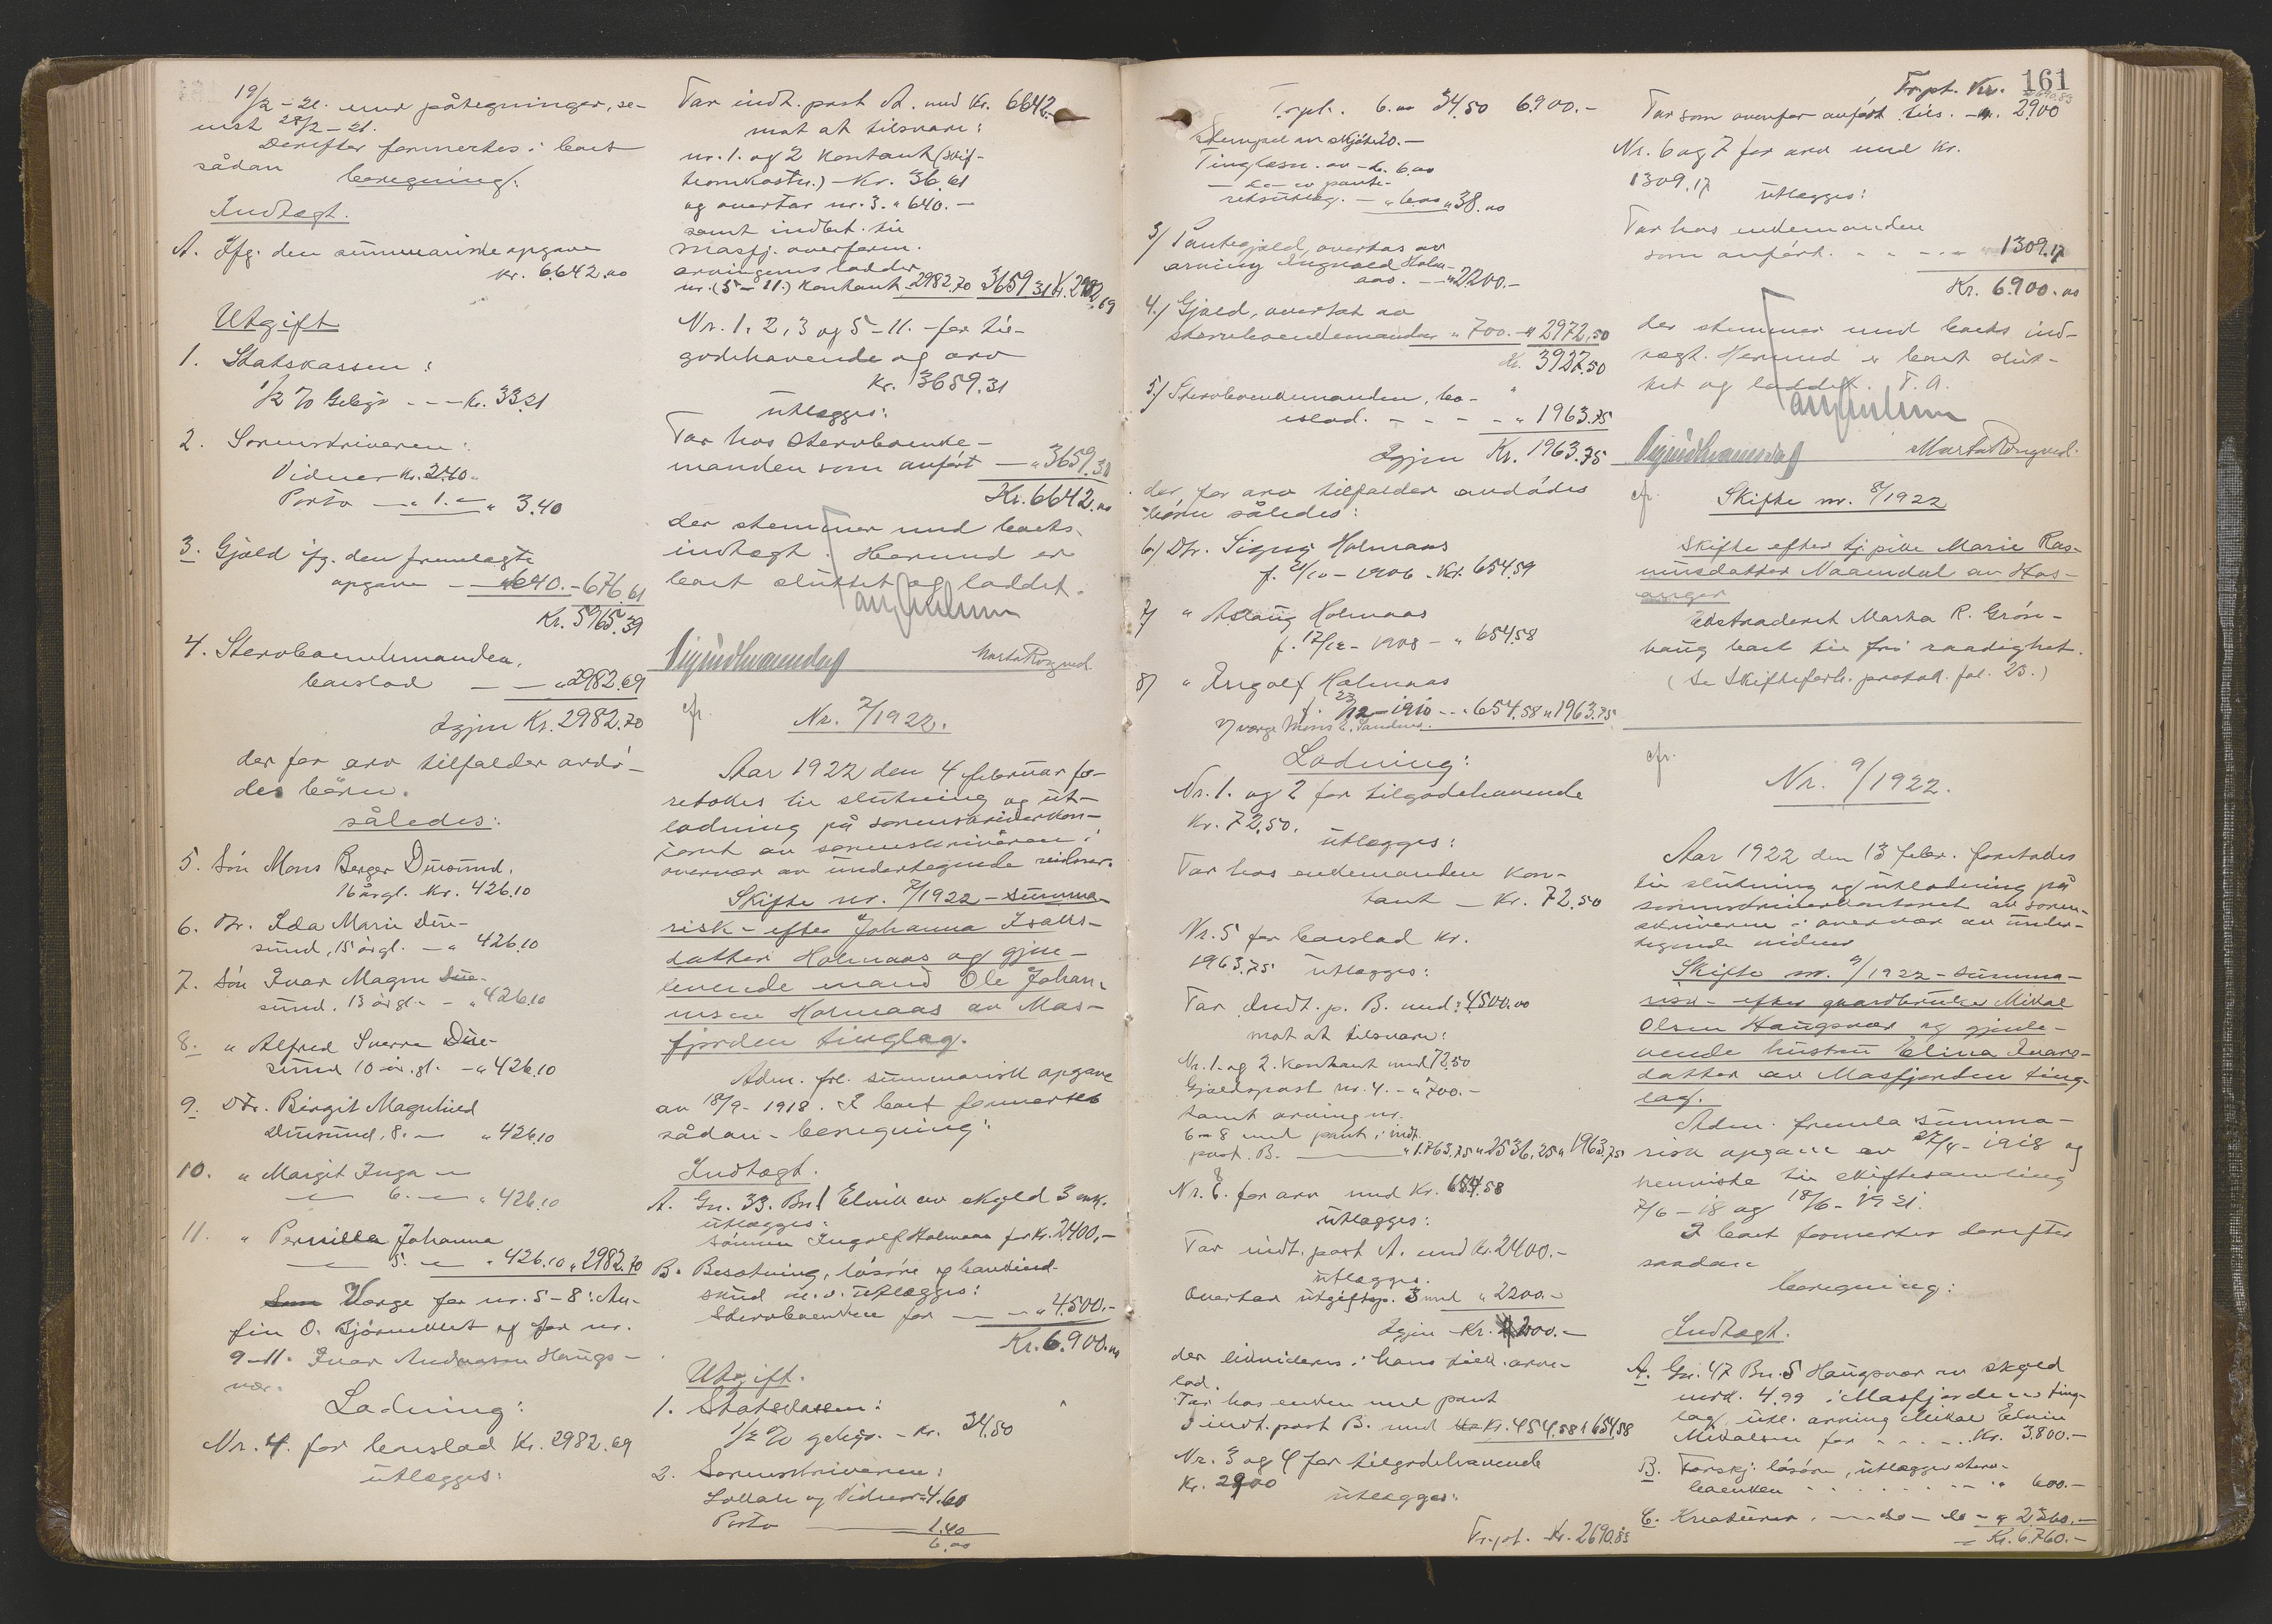 19/2 - 21. med påtegninger, se-
nest 28/2 - 21.
Derefter formertes i boet
sådan beregning:
Indtægt.
A. Ifg. den summariske opgave
kr. 6642.00
Utgift
1. Statskassen:
1/2 % Gebyr - - - Kr. 33.21
2. Sorenskriveren:
Vidner Kr. 2.40
Porto - " 1. - " 3.40
3. Gjæld ifg. den fremlagte
opgave - - " 640. - 676.61
Kr. 5965.39
4. Stervboenkemanden,
boeslod - - " 2982.69
Igjen Kr. 2982.70
der for arv tilfalder avdø-
des børn.
således:
5. Søn Mons Berger Duesund,
16 årgl. Kr. 426.10
6. Dtr. Ida Marie Due-
sund, 15 årgl. - " 426.10
7. Søn Ivar Magne Due-
sund, 13 årgl. - " 426.10
8. " Alfred Sverre Due-
sund 10 år.gl. - " 426.10
9. Dtr. Birgit Magnhild
Duesund, 8. — " 426.10
10. " Margit Inga —
— 6. — " 426.10
11. " Pernilla Johanna
— 5. — " 426.10 " 2982.70
Som Værge for nr. 5-8: An-
fin O. Bjørneklett og for nr.
9-11. Ivar Andreassen Haugs-
vær.
Lodning:
Nr. 4. for boeslod Kr. 2982.69
utlægges:
Tar indt. post A. med Kr. 6642.-
mot at tilsvare:
nr. 1. og 2 kontant (skif-
teomkostn.) - Kr. 36.61
og overtar nr. 3. " 640. -
samt indbet. til
Masfj. overform.
arvingernes lodder
nr. (5-11.) kontant 2982.70 3659.31 Kr. 2982.69
Nr. 1, 2, 3 og 5-11. - for til-
godehavende og arv
Kr. 3659.31
utlægges:
Tar hos stervboenke-
manden som anført — " 3659.31
Kr. 6642.00
der stemmer med boets
indtægt. Hermed er
boet sluttet og loddet.
Marta Rongved.
cfr. Nr. 7/1922.
Aar 1922 den 4 februar fo-
retokes til slutning og ut-
lodning på sorenskriverkon-
toret av sorenskriveren i
overvær av undertegnede vidner.
Skifte nr. 7/1922 - summa-
risk - efter Johanna Isaks-
datter Holmaas og gjen-
levende mand Ole Johan-
nesen Holmaas av Mas-
fjorden tinglag.
Adm. frl. summarisk opgave
av 18/9 - 1918. I boet formertes
sådan - beregning:
Indtægt.
A. Gn. 33. Bn. 1 Elvik av skyld 3 mk.
utlægges:
sønnen Ingolf Holmaas for Kr. 2400,-
B. Besætning, løsøre og bankind-
skud m.v. utlægges:
Stervboenken for — " 4.500.-
Kr. 6.900.00
Utgift.
1. Statskassen:
1/2 % gebyr. - Kr. 34.50
2. Sorenskriveren:
Sollah og Vidner " 4.60
Porto — 1.40
6.00
Trspt. 6.00 34.50 6.900.-
Stempel av skjøte 20.-
Tinglæsn. av - do. 6.00
— do — av pante-
retsutlæg. - " 6.00 " 38.00
3/ Pantegjæld, overtas av
arving Ingvald Holm-
aas. - - " 2200.-
4./ Gjæld, overtat av
stervboenkemanden " 700.- " 2972.50
Kr. 3927.50
5/ Stervboenkemanden, bo-
eslod. - - - - " 1963.75
Igjen Kr. 1963.75
der, for arv tilfalder avdødes
børn således:
6/ Dtr. Signy Holmaas
f. 21/10 - 1906 - Kr. 654.59
7/ " Aslaug Holmaas
f. 17/12 - 1908 - " 654.58
8/ " Ingolf Holmaas
f. 23/12 - 1910 - - " 654.58 " 1963.75
v/ værge Mons E. Sandnes.
Lodning:
Nr. 1. og 2 for tilgodehavende
Kr. 72,50.
utlægges:
Tar hos enkemanden kon-
tant - Kr. 72.50
Nr. 5 for boeslod Kr.
1963.75 utlægges:
Tar Indt. p. B. med " 4500.00
mot at tilsvare:
Nr. 1. og 2. kontant med 72.50
Gjældspost nr. 4. - " 700.-
samt arving nr.
6-8 med pant i indt.
post. B. — " 1.763.75 " 2536.25 " 1963.75
Nr. 8. for arv med Kr. 654.58
utlægges:
Tar indt. post A. med Kr. 2400.-
utlægges.
Overtar utgiftsp. 3 med " 2200.-
Igjen Kr. 200.-
der likvideres i hans tilk. arve-
lod.
Tar hos enken med pant
i indt. post B. med Kr. 454,58 " 654,58
Nr. 3 og 4 for tilgodehavende
Kr. 2900 utlægges:
Trspt. Kr. 2690.83
161
Trspt. Kr. 2690.83
Tar som ovenfor anført tils. - " 2900
Nr. 6 og 7 for arv med Kr.
1309.17 utlægges:
Tar hos enkemanden
som anført. - - - - 1309.17
Kr. 6.900.00
der stemmer med boets ind-
tægt. Hermed er boet slut-
tet og loddet. T. A.
Marta Rongved.
cfr. Skifte nr. 8/1922
Skifte efter tj. pike Marie Ras-
musdatter Naaendal av Hos-
anger
Extraderet Marta R. Grøn-
haug boet til fri raadighet.
(Se Skifteforh. protok. fol. 25.)
cfr.
Nr. 9/1922.
Aar 1922 den 13 febr. foretokes
til slutning og utlodning på
sorenskriverkontoret av soren-
skriveren i overvær av under-
tegnede vidner
Skifte nr. 9/1922 - summa-
risk - efter gaardbruker Mikal
Olsen Haugsvær og gjenle-
vende hustru Elina Ivars-
datter av Masfjorden ting-
lag.
Adm. fremla summa-
risk opgave av 27/4 - 1918 og
henviste til skiftesamling
7/6 - 18 og 18/6 - 1921.
I boet formertes derefter
saadan
beregning:
Indtægt.
A. Gn. 47 Bn. 5 Haugsvær av skyld
mrk. 4.99 i Masfjordens ting-
lag utl. arving Mikal Elvin
Mikalsen for - - - - Kr. 3.800.-
B. Forskj. løsøre, utlægges sterv-
boenken - - - - - - " 600.-
C. Kreaturer. — do — do - " 2360.-
— Kr. 6.760.-